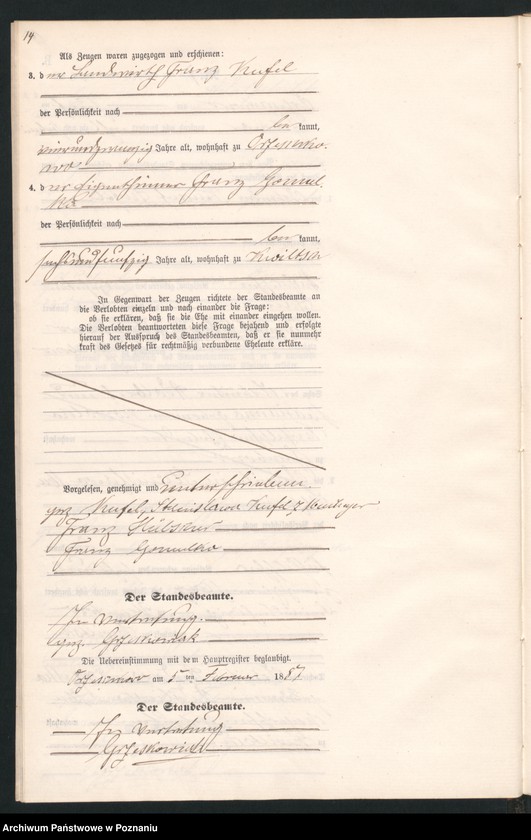 14
Als Zeugen waren zugezogen und erschienen:
3. d er Landwirth Franz Kufel
der Persönlichkeit nach
be kannt,
vierundzwanzig Jahre alt, wohnhaft zu
4. d er Eigenthümer Franz Gomul-
ka
der Persönlichkeit nach
be kannt,
sechsundfünfzig Jahre alt, wohnhaft zu Kwiltsch
In Gegenwart der Zeugen richtete der Standesbeamte an
die Verlobten einzeln und nach einander die Frage:
ob sie erklären, daß sie die Ehe mit einander eingehen wollen.
Die Verlobten beantworteten diese Frage bejahend und erfolgte
hierauf der Ausspruch des Standesbeamten, daß er sie nunmehr
kraft des Gesetzes für rechtmäßig verbundene Eheleute erkläre.
Vorgelesen, genehmigt und unterschrieben.
gez. Kufel, Stanislawa Kufel
Franz
Franz Gomulka
Der Standesbeamte.
In Vertretung.
gez. Grzeskowiak
Die Uebereinstimmung mit dem Hauptregister beglaubigt.
am 5 ten Februar 1887
Der Standesbeamte.
In Vertretung
Grzeskowiak
Archiwum Państwowe w Poznaniu